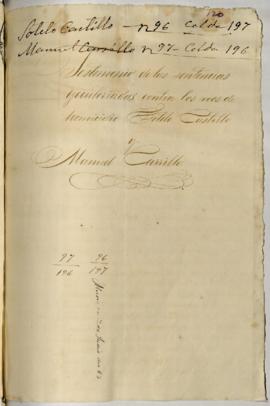 120
Sotelo Castillo — n 96 Celda 197
Manuel Carrillo n 97 - Celda 196
Testimonio de las sentencias
contra los reos de
homicidio Sotelo Castillo
y
Manuel Carrillo
97 96
196 197